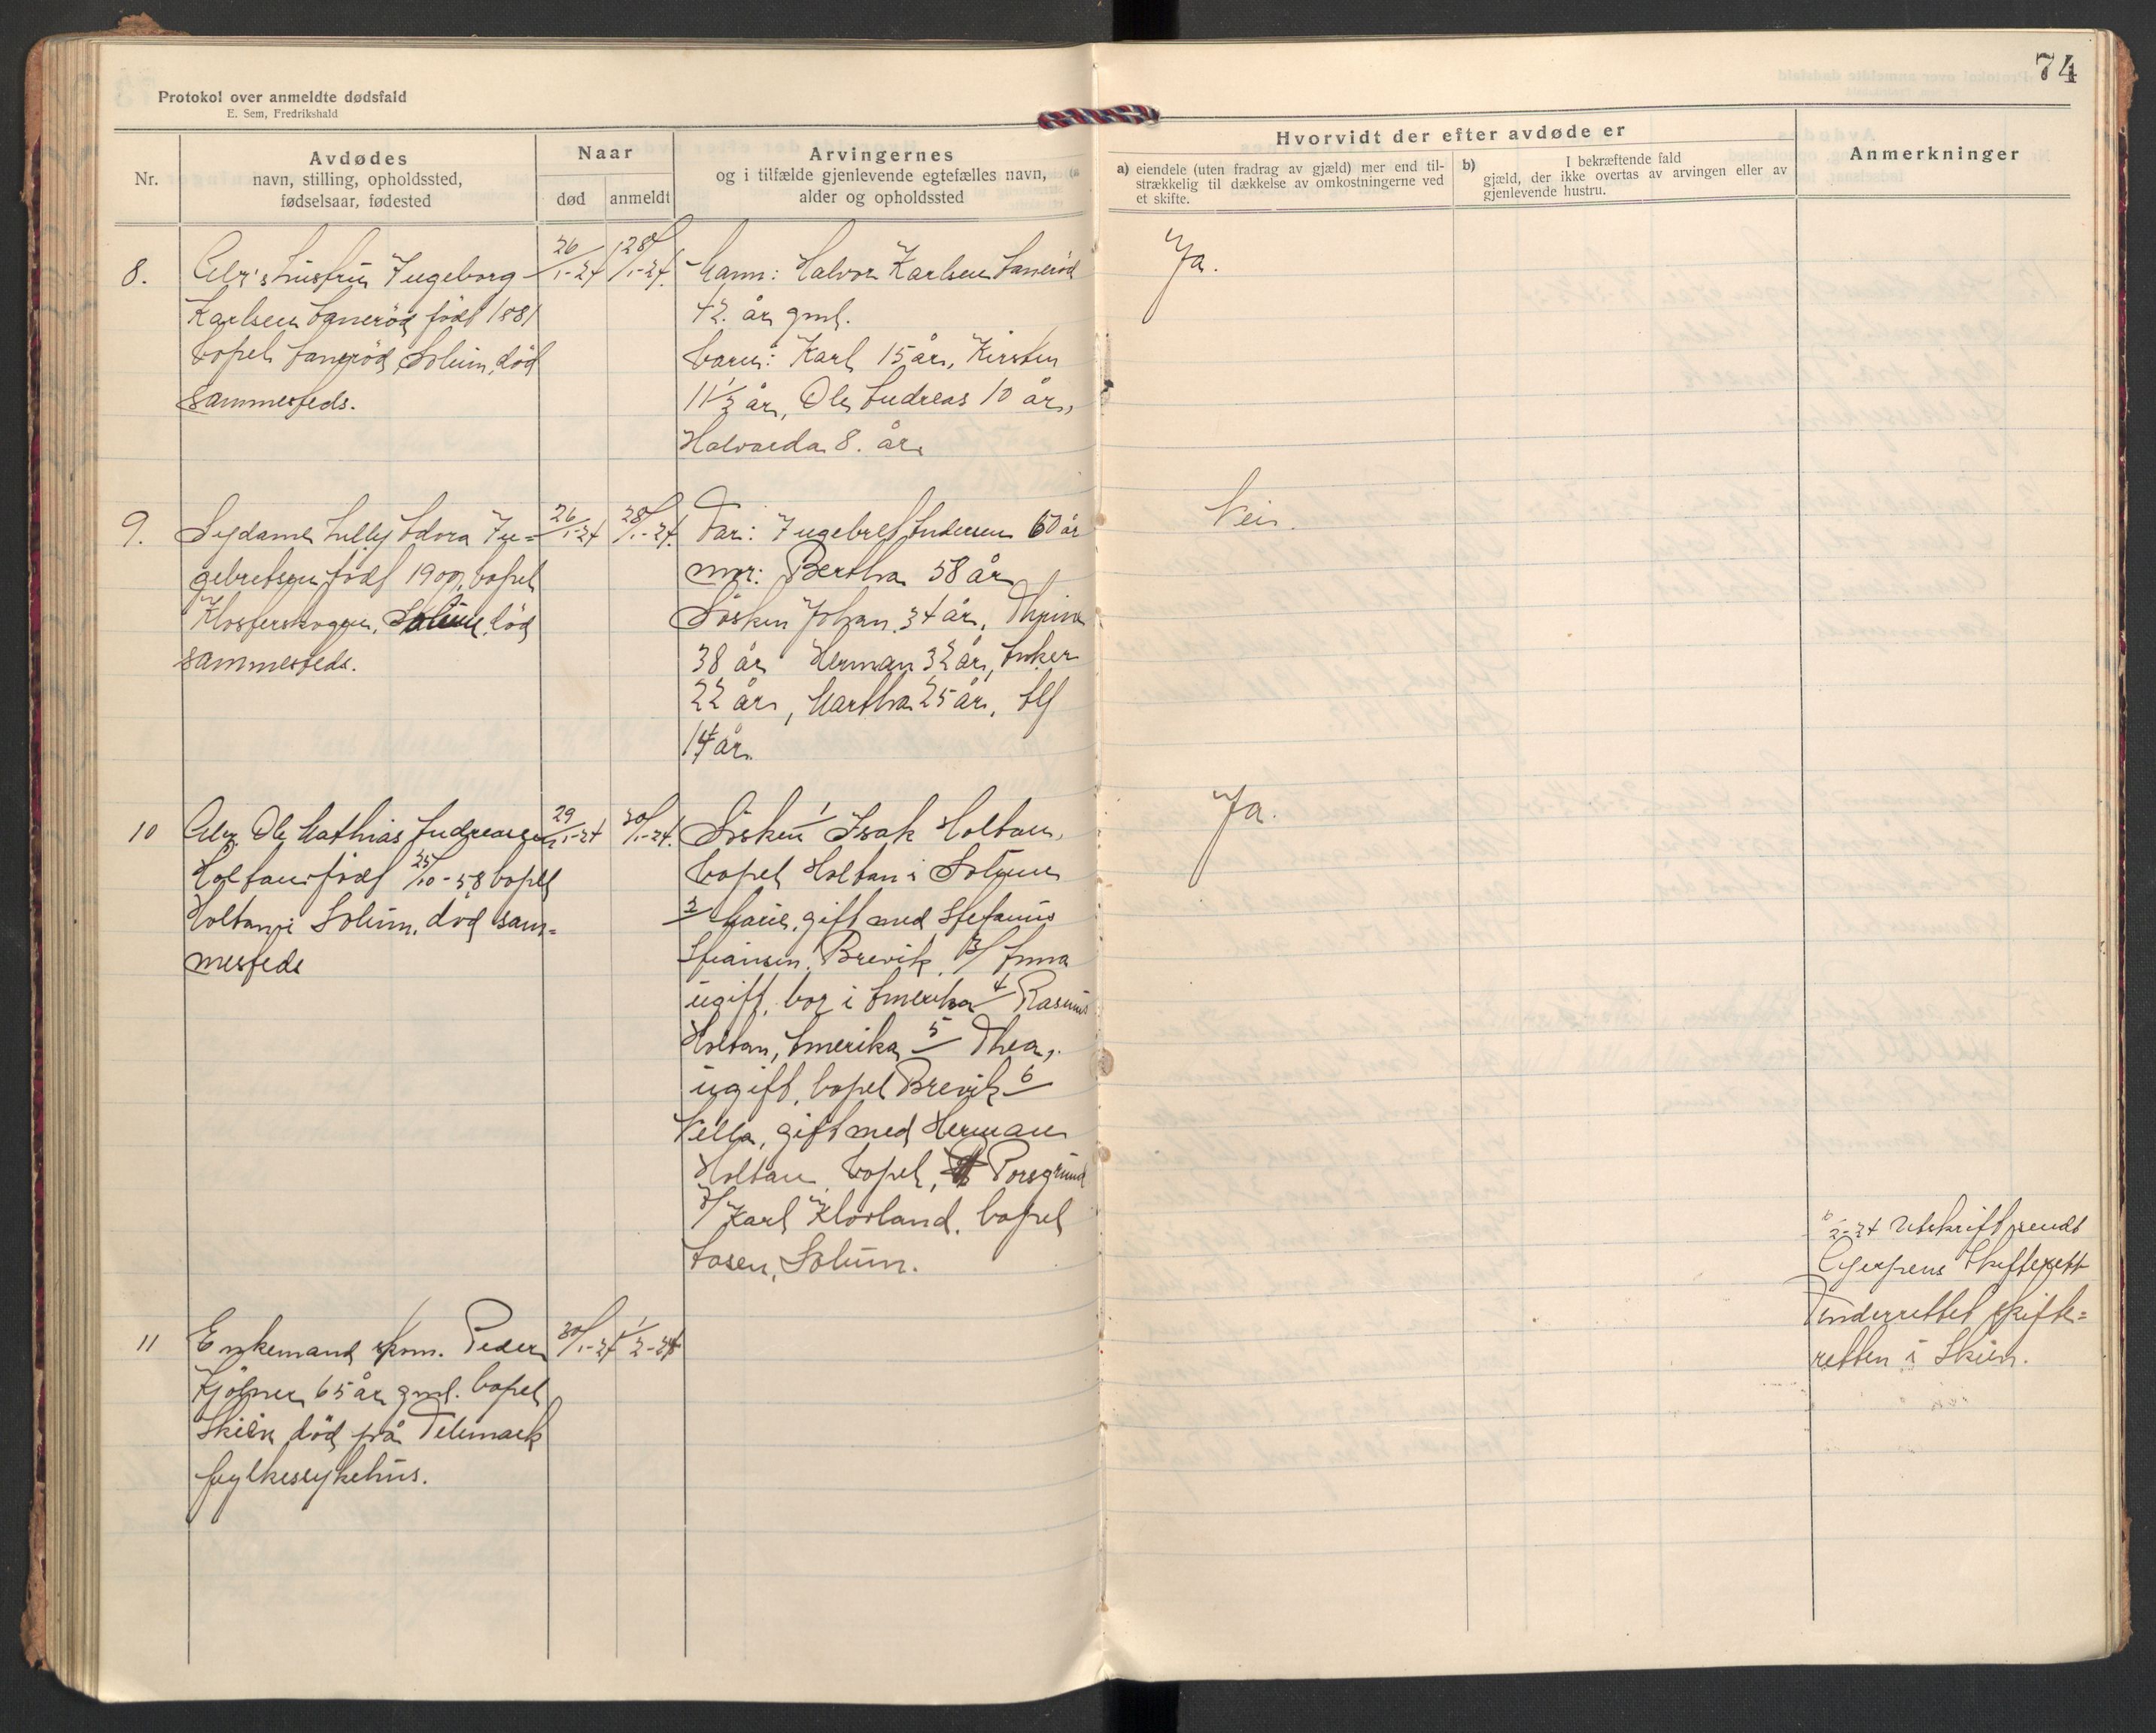 74
Protokol over anmeldte dødsfald
E. Sem, Fredrikshald
Nr.
Avdødes
navn, stilling, opholdssted,
fødselsaar, fødested
Naar
død
anmeldt
Arvingernes
og i tilfælde gjenlevende egtefælles navn,
alder og opholdssted
Hvorvidt der efter avdøde er
a) eiendele (uten fradrag av gjæld) mer end til-
strækkelig til dækkelse av omkostningerne ved
et skifte.
b) I bekræftende fald
gjæld, der ikke overtas av arvingen eller av
gjenlevende hustru.
Anmerkninger
8.
hustru Ingeborg
Karlsen født 1881
bopel Solum, død
sammesteds.
26/1-24
28/1-24.
Mann: Halvor Karlsen
42 år gml.
barn: Karl 15 år, Kirsten
11 1/2 år, Ole Andreas 10 år,
Halvarda 8. år
Ja.
9.
Sydame Lilly Edora In=
gebretsen født 1900, bopel
Klosterskogen, Solum, død
sammesteds.
26/1-24
28/1-24.
Far: Ingebret Andersen 60 år
mor: Bertha 58 år
Søsken Johan 34 år,
38 år Herman 32 år, Anker
22 år, Martha 25 år, Alf
14 år.
Nei.
10
Ole Mathias Andreasen
Holtan født 25/10-58 bopel
Holtan i Solum, død sam=
mesteds
29/1-24
30/1-24.
Søsken 1/ Isak Holtan,
bopel Holtan i Solum
2/ Marie, gift med Stefanus
Brevik, 3/ Anna
ugift, bor i Amerika 4/ Rasmus
Holtan, Amerika 5/ Thea,
ugift, bopel Brevik 6/
gift med Herman
Holtan, bopel, Porsgrund
7/ Karl Klovland, bopel
Åsen, Solum.
Ja.
11
Enkemand skom. Peder
Kjølner 65 år gml. bopel
Skien død på Telemark
fylkessykehus.
30/1-24
1/2-24
2-24 Utskrift sendt
Gjerpens Skifterett
underrettet skifte=
retten i Skien.